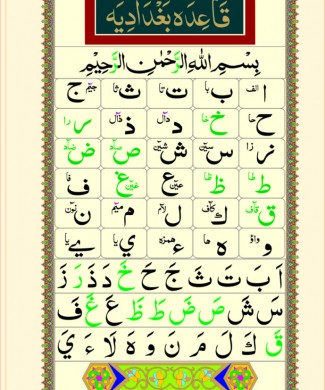 قَاعِدَه بَغْدَادِیَه
بِسْمِ اللهِ الرَّحْمٰنِ الرَّحِيْمِ
ا الف ب با ت تا ث ثا ج جیم
ح حا خ خا د دال ذ ذال ر را
ز زا س سین ش شین ص صاد ض ضاد
ط طا ظ ظا ع عین غ غین ف فا
ق قاف ك كاف ل لام م میم ن نون
و واؤ ه ها ء همزه ي یا ے یا
اَ بَ تَ ثَ جَ حَ خَ دَ ذَ رَ زَ
سَ شَ صَ ضَ طَ ظَ عَ غَ فَ
قَ كَ لَ مَ نَ وَ هَ لَا ءَ يَ